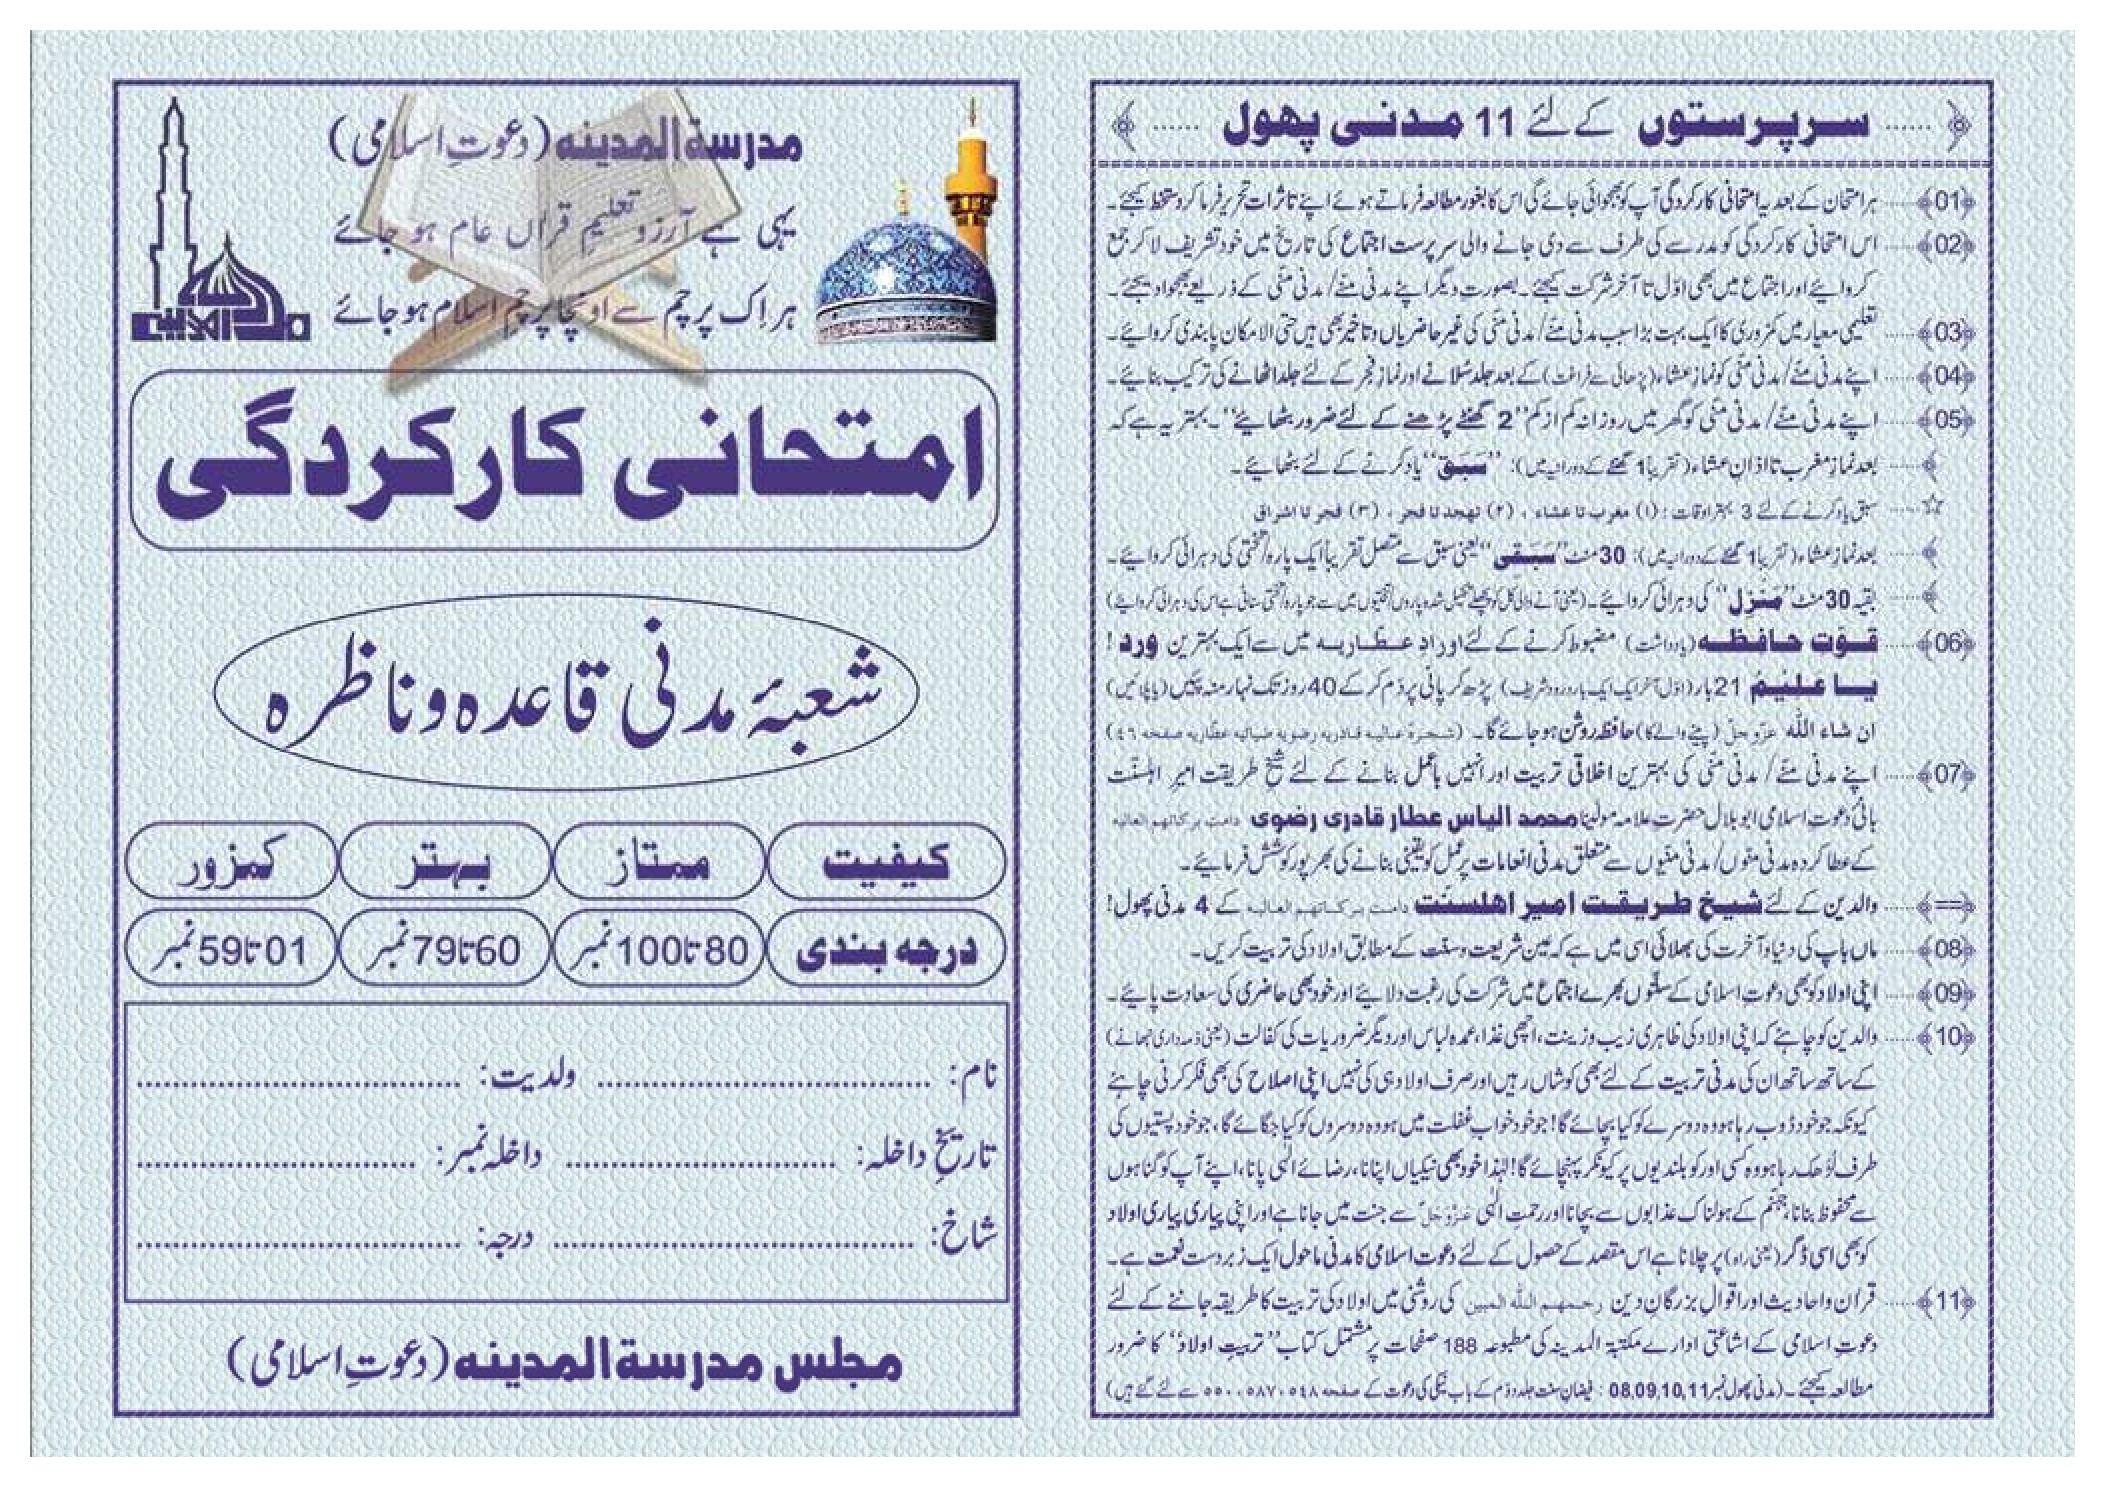 سرپرستوں کے لئے 11 مدنی پھول
﴿01﴾ ...... ہر امتحان کے بعد یہ امتحانی کارکردگی آپ کو بھجوائی جائے گی اس کا بغور مطالعہ فرماتے ہوئے اپنے تاثرات تحریر فرما کر دستخط کیجئے۔
﴿02﴾ ...... اس امتحانی کارکردگی کو مدرسے کی طرف سے دی جانے والی سرپرست اجتماع کی تاریخ میں خود تشریف لا کر جمع
کروائیے اور اجتماع میں بھی اوّل تا آخر شرکت کیجئے۔ بصورت دیگر اپنے مدنی منّے/ مدنی منّی کے ذریعے بھجوا دیجئے۔
﴿03﴾ ...... تعلیمی معیار میں کمزوری کا ایک بہت بڑا سبب مدنی منّے/ مدنی منّی کی غیر حاضریاں و تاخیر بھی ہیں حتی الامکان پابندی کروائیے۔
﴿04﴾ ...... اپنے مدنی منّے/ مدنی منّی کو نمازِ عشاء (پڑھائی سے فراغت) کے بعد جلد سُلانے اور نمازِ فجر کے لئے جلد اٹھانے کی ترکیب بنائیے۔
﴿05﴾ ...... اپنے مدنی منّے/ مدنی منّی کو گھر میں روزانہ کم از کم ”2 گھنٹے پڑھنے کے لئے ضرور بٹھائیے“۔ بہتر یہ ہے کہ
﴾ ...... بعد نمازِ مغرب تا اذانِ عشاء (تقریباً 1 گھنٹے کے دورانیہ میں): ”سَبَق“ یاد کرنے کے لئے بٹھائیے۔
☆ ...... سبق یاد کرنے کے لئے 3 بہتر اوقات: (۱) مغرب تا عشاء، (۲) تهجد تا فجر، (۳) فجر تا اشراق
﴾ ...... بعد نمازِ عشاء (تقریباً 1 گھنٹے کے دورانیہ میں): 30 منٹ ”سَبَقی“ یعنی سبق سے متصل تقریباً ایک پارہ/تختی کی دہرائی کروائیے۔
﴾ ...... بقیہ 30 منٹ ”مَنْزِل“ کی دہرائی کروائیے۔ (یعنی آنے والی کل کو پچھلے تکمیل شدہ پاروں/تختیوں میں سے جو پارہ/تختی سنانی ہے اس کی دہرائی کروائیے)
﴿06﴾ ...... قوّت حافظہ (یادداشت) مضبوط کرنے کے لئے اورادِ عطّاریہ میں سے ایک بہترین ورد!
یا علیمُ 21 بار (اوّل آخر ایک ایک بار درود شریف) پڑھ کر پانی پر دَم کر کے 40 روز تک نہار منہ پئیں (یا پلائیں)
ان شاء اللہ عزّوجلّ (پینے والے کا) حافظہ روشن ہو جائے گا۔ (شجرۂ عالیہ قادریہ رضویہ ضیائیہ عطّاریہ صفحہ ٤٦)
﴿07﴾ ...... اپنے مدنی منّے/ مدنی منّی کی بہترین اخلاقی تربیت اور انہیں باعمل بنانے کے لئے شیخِ طریقت امیرِ اہلسنّت
بانیِ دعوتِ اسلامی ابو بلال حضرت علامہ مولینا محمد الیاس عطار قادری رضوی دامت برکاتهم العالیه
کے عطا کردہ مدنی منّوں/ مدنی منّیوں سے متعلق مدنی انعامات پر عمل کو یقینی بنانے کی بھر پور کوشش فرمائیے۔
﴿==﴾ ...... والدین کے لئے شیخ طریقت امیر اهلسنّت دامت برکاتهم العالیه کے 4 مدنی پھول!
﴿08﴾ ...... ماں باپ کی دنیا و آخرت کی بھلائی اسی میں ہے کہ عین شریعت و سنّت کے مطابق اولاد کی تربیت کریں۔
﴿09﴾ ...... اپنی اولاد کو بھی دعوتِ اسلامی کے سنّتوں بھرے اجتماع میں شرکت کی رغبت دلائیے اور خود بھی حاضری کی سعادت پائیے۔
﴿10﴾ ...... والدین کو چاہئے کہ اپنی اولاد کی ظاہری زیب و زینت، اچھی غذا، عمدہ لباس اور دیگر ضروریات کی کفالت (یعنی ذمہ داری نبھانے)
کے ساتھ ساتھ ان کی مدنی تربیت کے لئے بھی کوشاں رہیں اور صرف اولاد ہی کی نہیں اپنی اصلاح کی بھی فکر کرنی چاہئے
کیونکہ جو خود ڈوب رہا ہو وہ دوسرے کو کیا بچائے گا! جو خود خوابِ غفلت میں ہو وہ دوسروں کو کیا جگائے گا، جو خود پستیوں کی
طرف لُڑھک رہا ہو وہ کسی اور کو بلندیوں پر کیونکر پہنچائے گا! لہٰذا خود بھی نیکیاں اپنانا، رضائے الٰہی پانا، اپنے آپ کو گناہوں
سے محفوظ بنانا، جہنّم کے ہولناک عذابوں سے بچانا اور رحمتِ الٰہی عزّوجلّ سے جنت میں جانا ہے اور اپنی پیاری پیاری اولاد
کو بھی اسی ڈگر (یعنی راہ) پر چلانا ہے اس مقصد کے حصول کے لئے دعوتِ اسلامی کا مدنی ماحول ایک زبردست نعمت ہے۔
﴿11﴾ ...... قرآن و احادیث اور اقوالِ بزرگانِ دین رحمهم اللہ المبین کی روشنی میں اولاد کی تربیت کا طریقہ جاننے کے لئے
دعوتِ اسلامی کے اشاعتی ادارے مکتبۃ المدینہ کی مطبوعہ 188 صفحات پر مشتمل کتاب ”تربیتِ اولاد“ کا ضرور
مطالعہ کیجئے۔ (مدنی پھول نمبر 08,09,10,11 : فیضانِ سنت جلد دوّم کے باب نیکی کی دعوت کے صفحہ ٥٤٨، ٥٨٧، ٥٥٠٠ سے لئے گئے ہیں)
مدرسۃ المدینہ (دعوتِ اسلامی)
یہی ہے آرزو تعلیمِ قرآں عام ہو جائے
ہر اِک پرچم سے اونچا پرچمِ اسلام ہو جائے
مدرسۃ المدینہ
امتحانی کارکردگی
شعبۂ مدنی قاعدہ و ناظرہ
کیفیت ممتاز بہتر کمزور
درجہ بندی 80 تا 100 نمبر 60 تا 79 نمبر 01 تا 59 نمبر
نام: ولدیت:
تاریخِ داخلہ: داخلہ نمبر:
شاخ: درجہ:
مجلس مدرسۃ المدینہ (دعوتِ اسلامی)